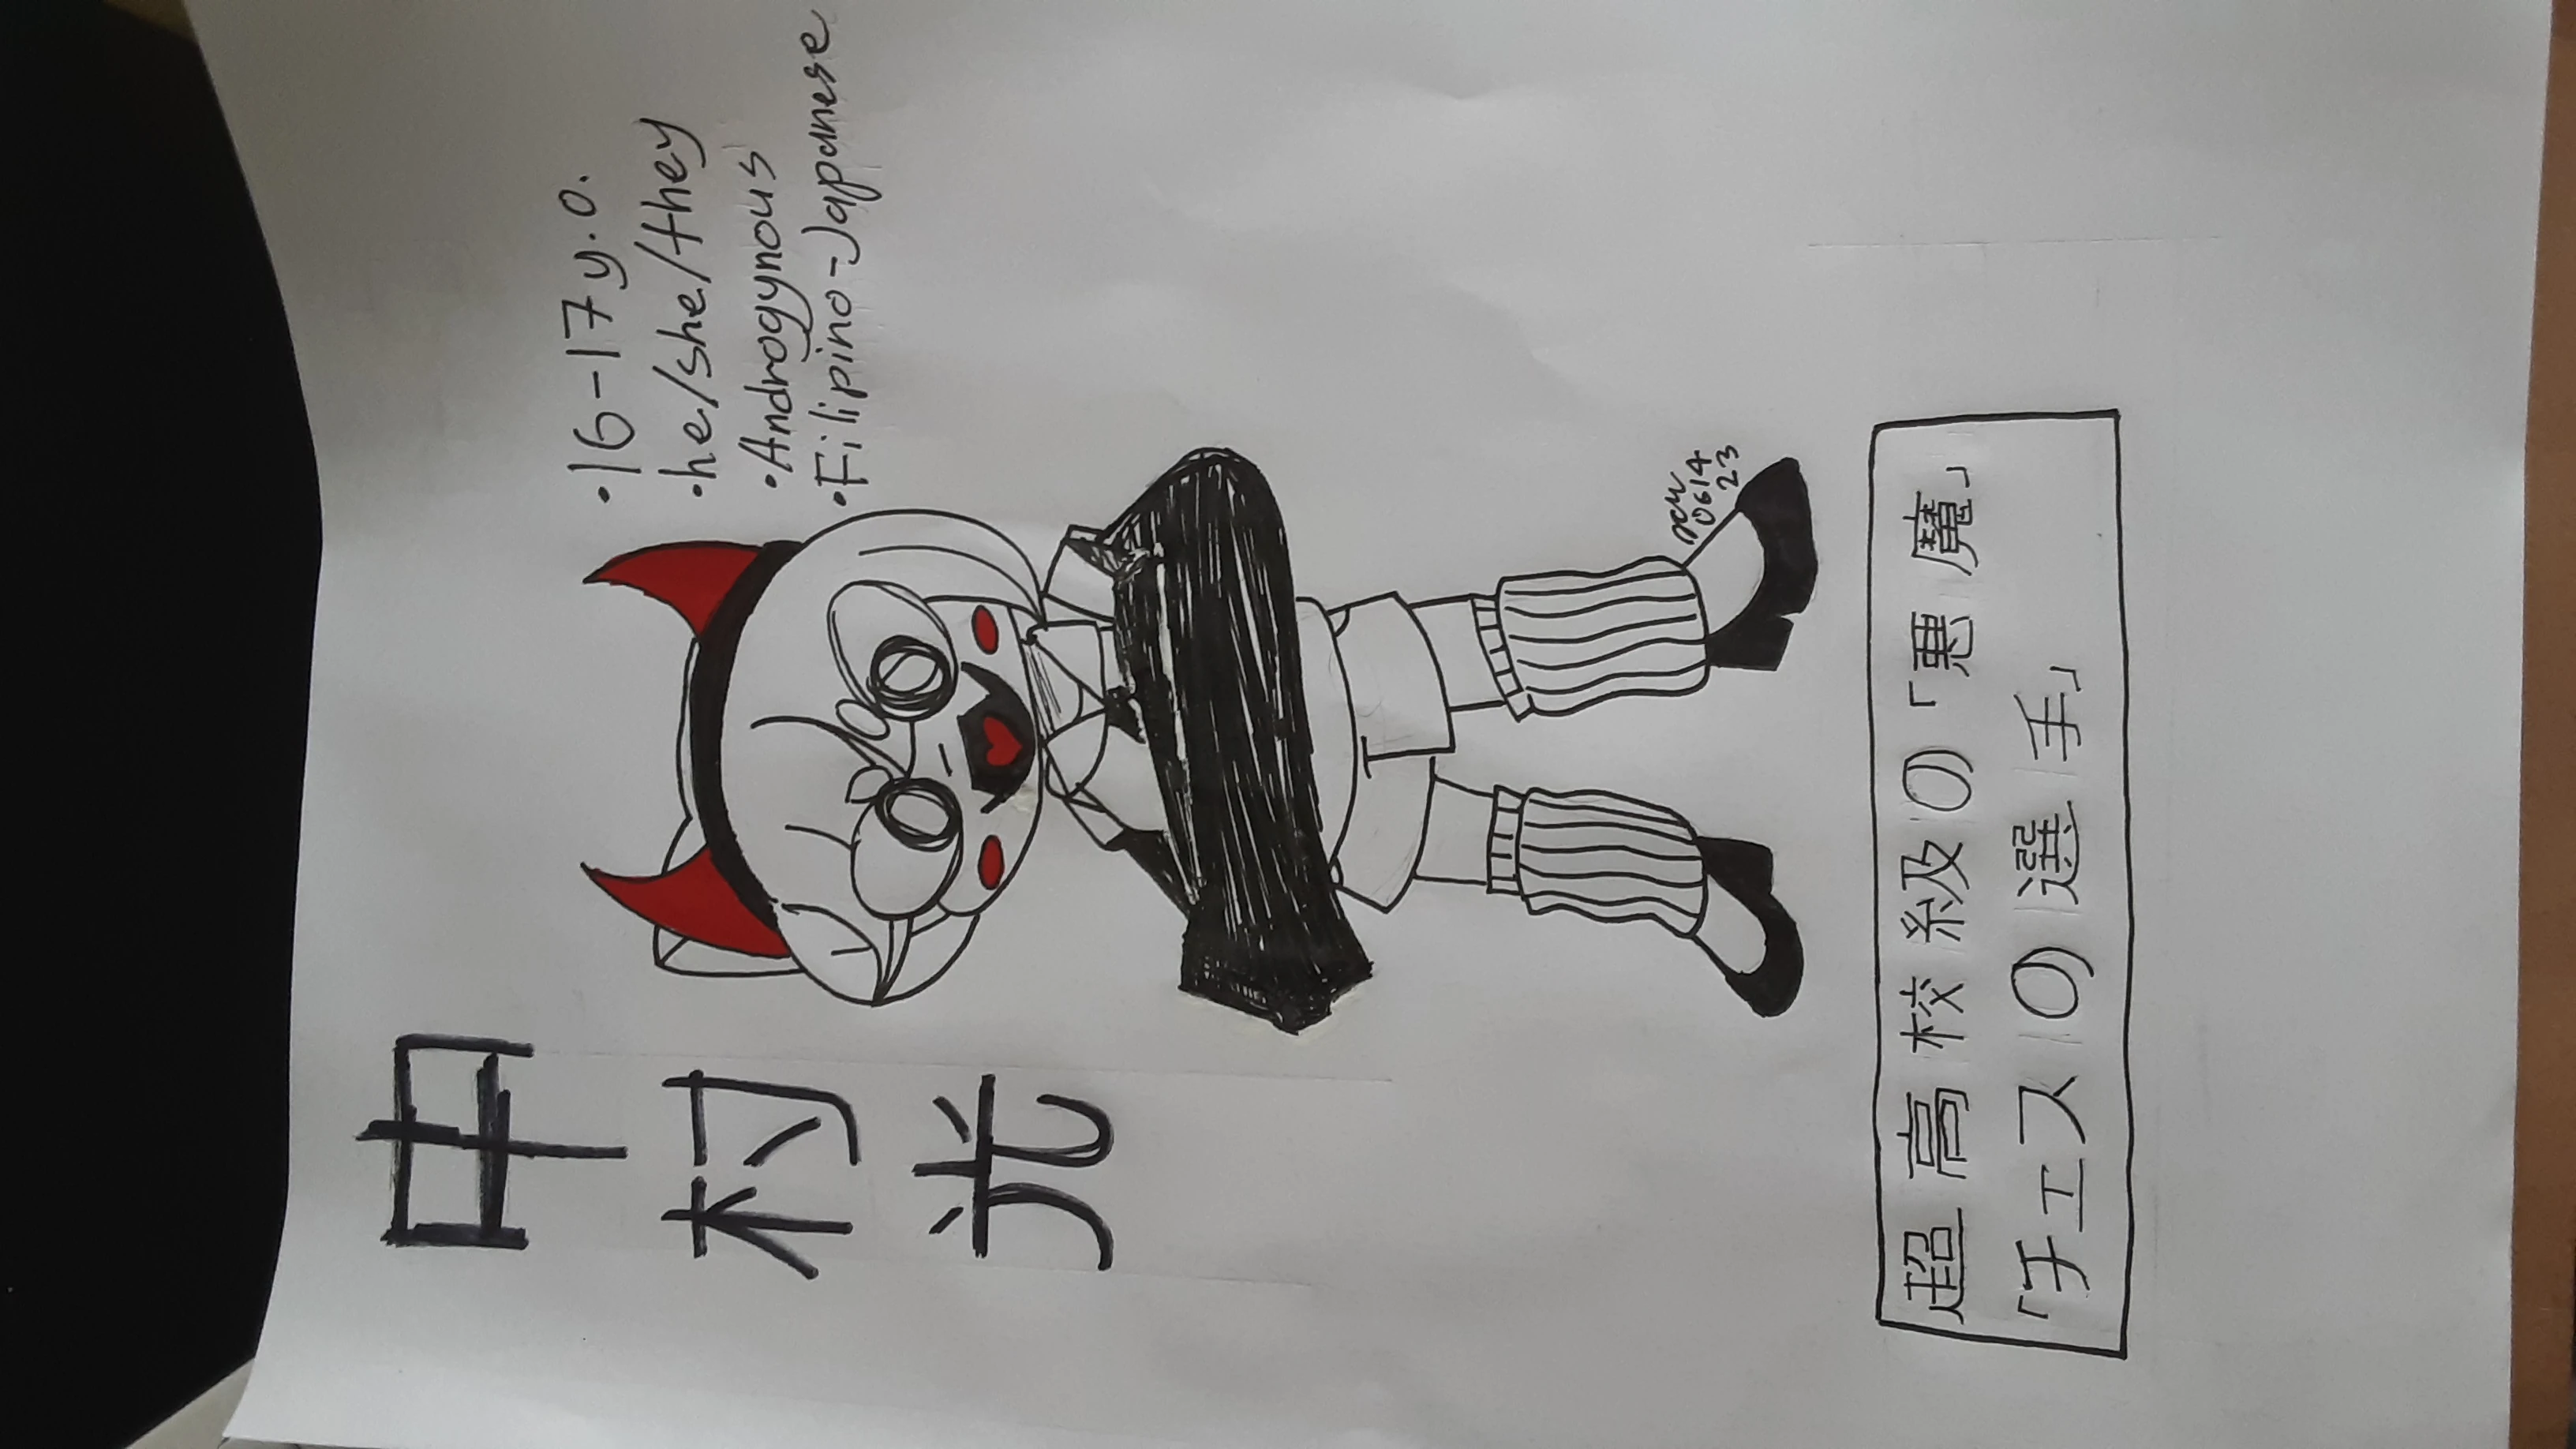 中
村
光
・16-17 y.o.
・he/she/they
・Androgynous
・Filipino-Japanese
0614
23
超高校級の「恵魔」
「チェスの選手」